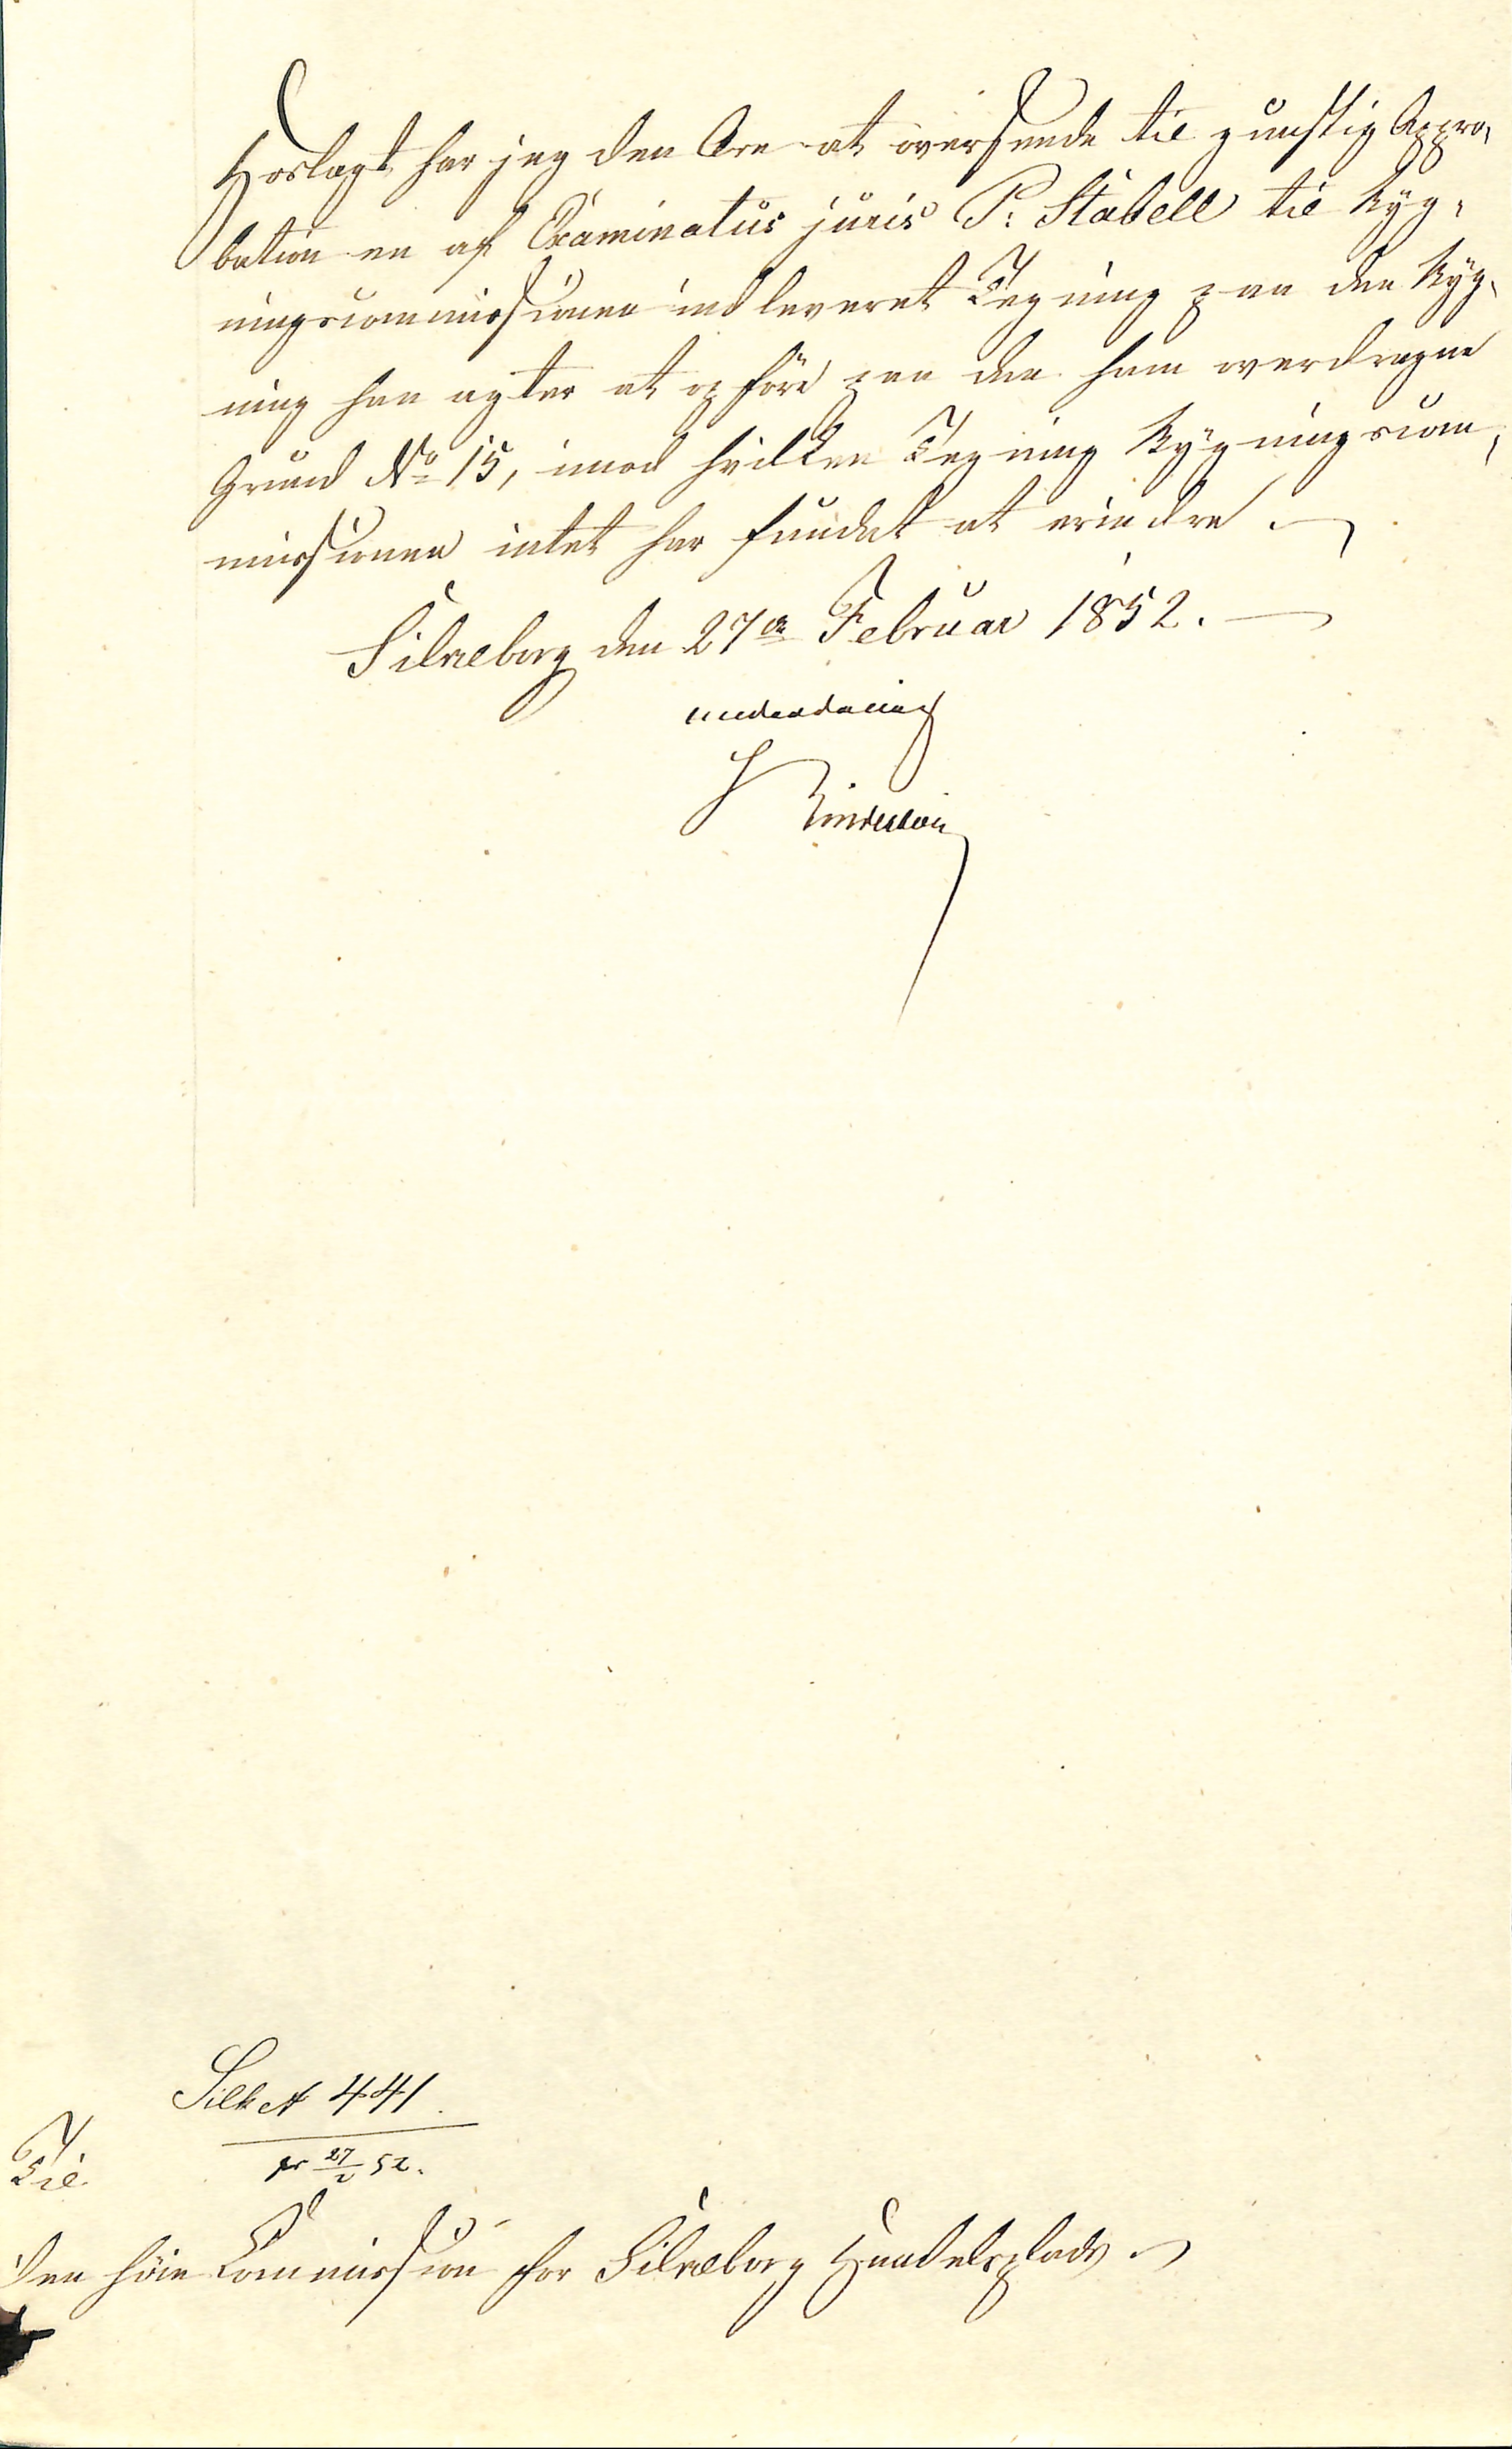 Hoslagt har jeg den Ære at oversende til gunstig Appro-
bation en af Examinatus juris P. Stabell til Byg-
ningscommissionen indleveret Tegning paa den Byg-
ning han agter at opföre paa den ham overdragne
Grund No 15, imod hvilken Tegning Bygningscom-
missionen intet har fundet at erindre.
Silkeborg den 27de Februar 1852.
underdanig
Silk A 441.
pr 27/2 52.
Til
Den höie Commission for Silkeborg Handelsplads